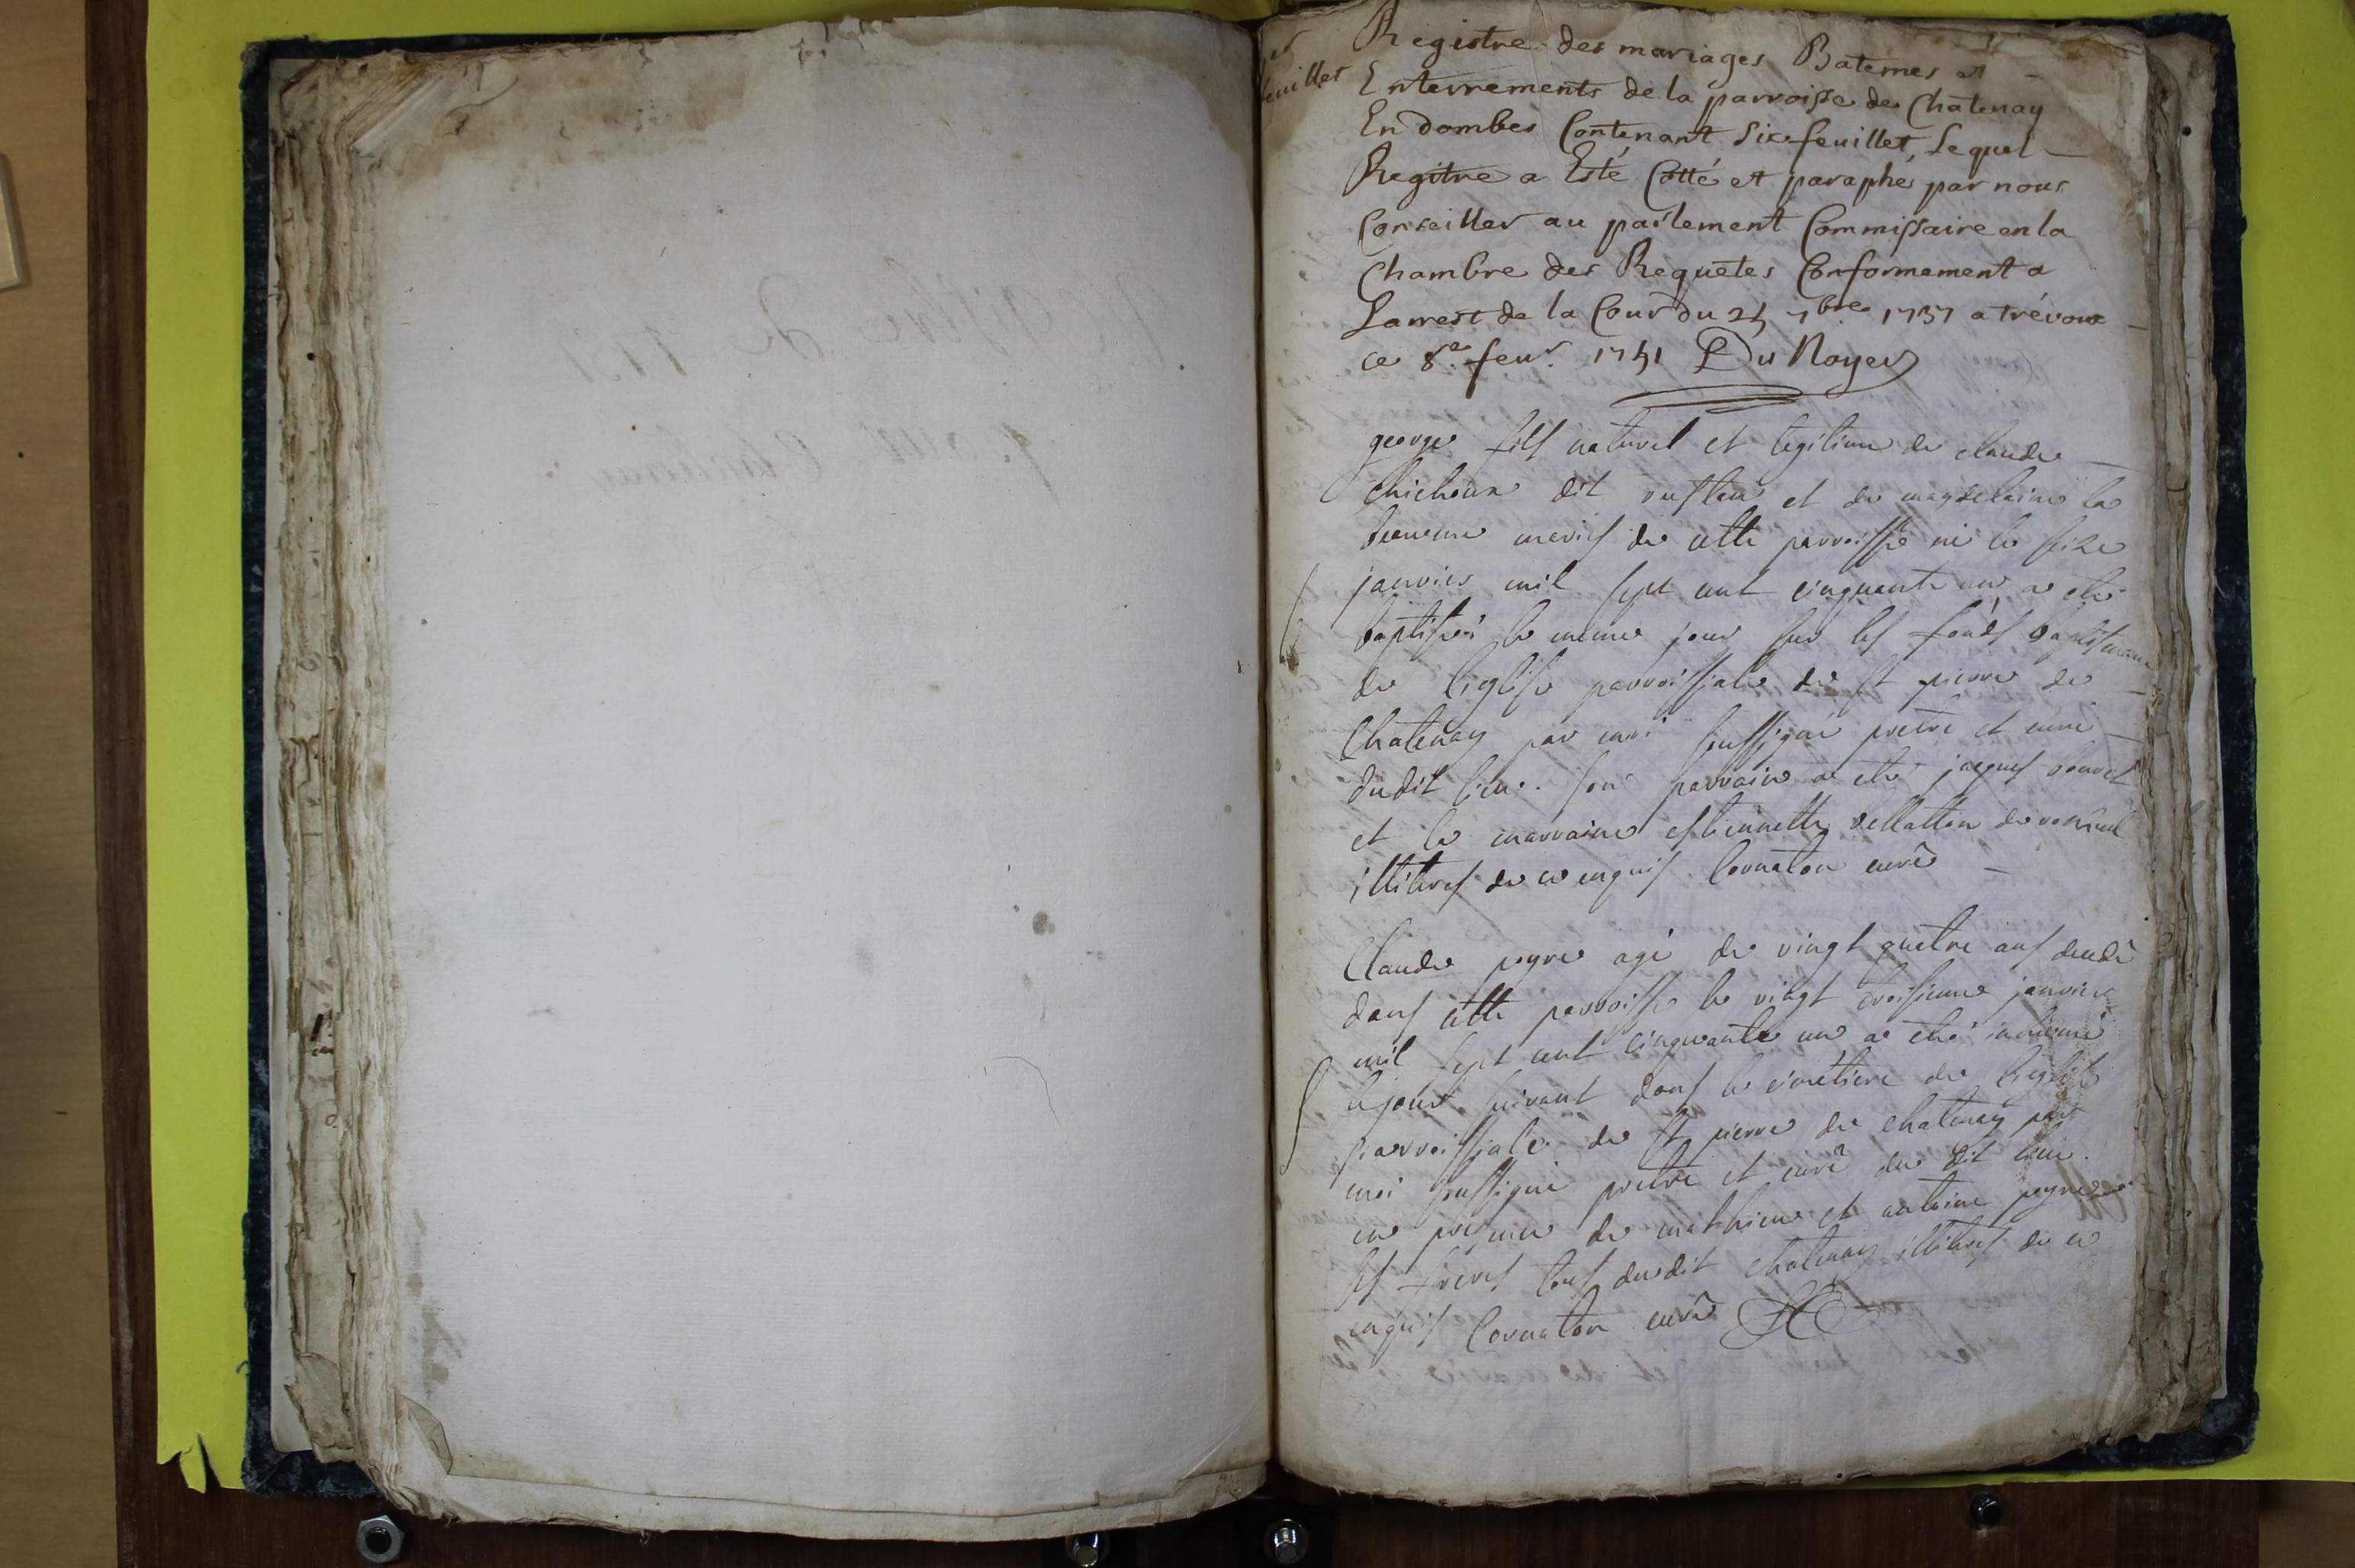 feuillet
Registre des mariages Batemes et
Enterrements de la parroisse de Chatenay
En dombes Contenant Six feuillet, Lequel
Regitre a Esté Cotté et paraphé par nous
Conseiller au parlement Commissaire en la
Chambre des Requetes Conformement a
Larrest de la Cour du 24 7bre 1737 a trévoux
ce 8e feur. 1751 Du Noyer
george fils naturel et legitime de claude
chichoux dit et de magdelaine la
mariés de cette parroisse né le seize
janvier mil sept cent cinquante un a eté
baptisé le meme jour sur les fonds baptismaux
de l'eglise parroissiale de st pierre de
Chatenay par moi soussigné pretre et curé
dudit lieu. son parrain a eté jaques
et la marraine estiennette de
illiteres de ce enquis. Cornaton curé
Claude peyre agé de vingt quatre ans decedé
dans cette parroisse le vingt troisieme janvier
mil sept cent cinquante un a eté inhumé
le jour suivant dans le cimetiere de l'eglise
parroissiale de st pierre de chatenay par
moi soussigné pretre et curé du dit lieu.
en presence de mathieu et antoine peyre
ses freres tous dudit chatenay illiteres de ce
enquis Cornaton curé